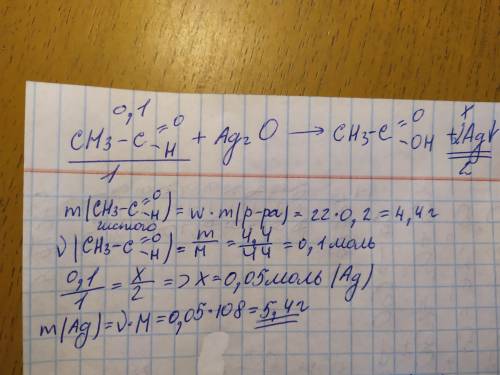 0,1 x
CH₃-C(=O)(-H) + Ag₂O → CH₃-C(=O)(-OH) + 2Ag↓
1 2
m(CH₃-C(=O)(-H)) = w·m(р-ра) = 22·0,2 = 4,4г
чистого
ν(CH₃-C(=O)(-H)) = m/M = 4,4/44 = 0,1 моль
0,1/1 = x/2 => x = 0,05 моль (Ag)
m(Ag) = ν·M = 0,05·108 = 5,4г